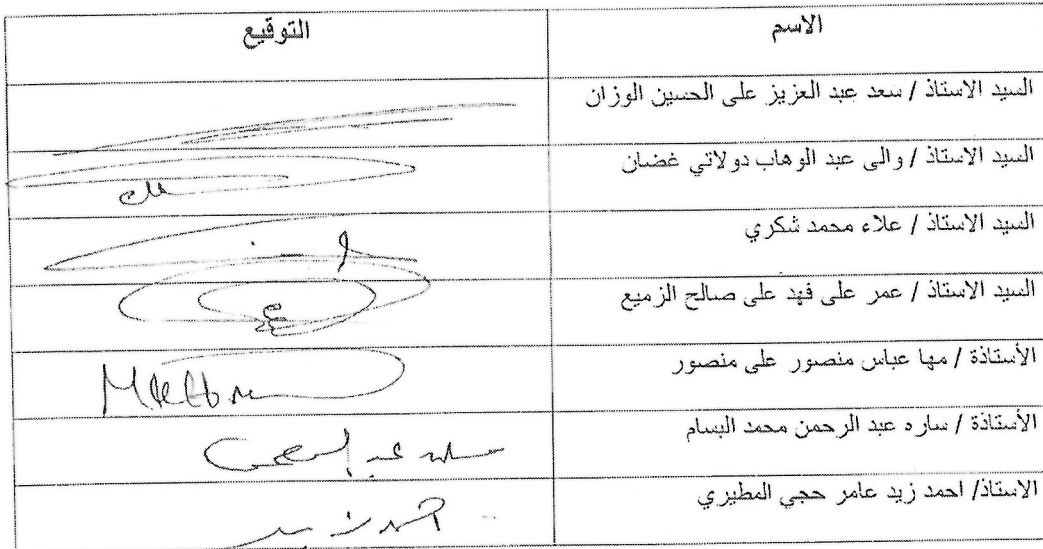 الاسم التوقيع
السيد الاستاذ / سعد عبد العزيز على الحسين الوزان
السيد الاستاذ / والى عبد الوهاب دولاتي غضان
السيد الاستاذ / علاء محمد شكري
السيد الاستاذ / عمر على فهد على صالح الزميع
الأستاذة / مها عباس منصور على منصور
الأستاذة / ساره عبد الرحمن محمد البسام
الاستاذ/ احمد زيد عامر حجي المطيري